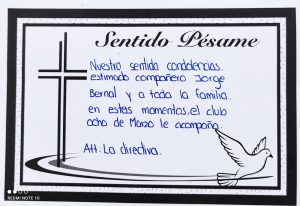 Sentido Pésame
Nuestro sentida condolencias.
estimado compañero Jorge
Bernal y a toda la familia.
en estas momentos. el club
ocho de Marzo le acompaña.
Att: La directiva.
REDMI NOTE 10